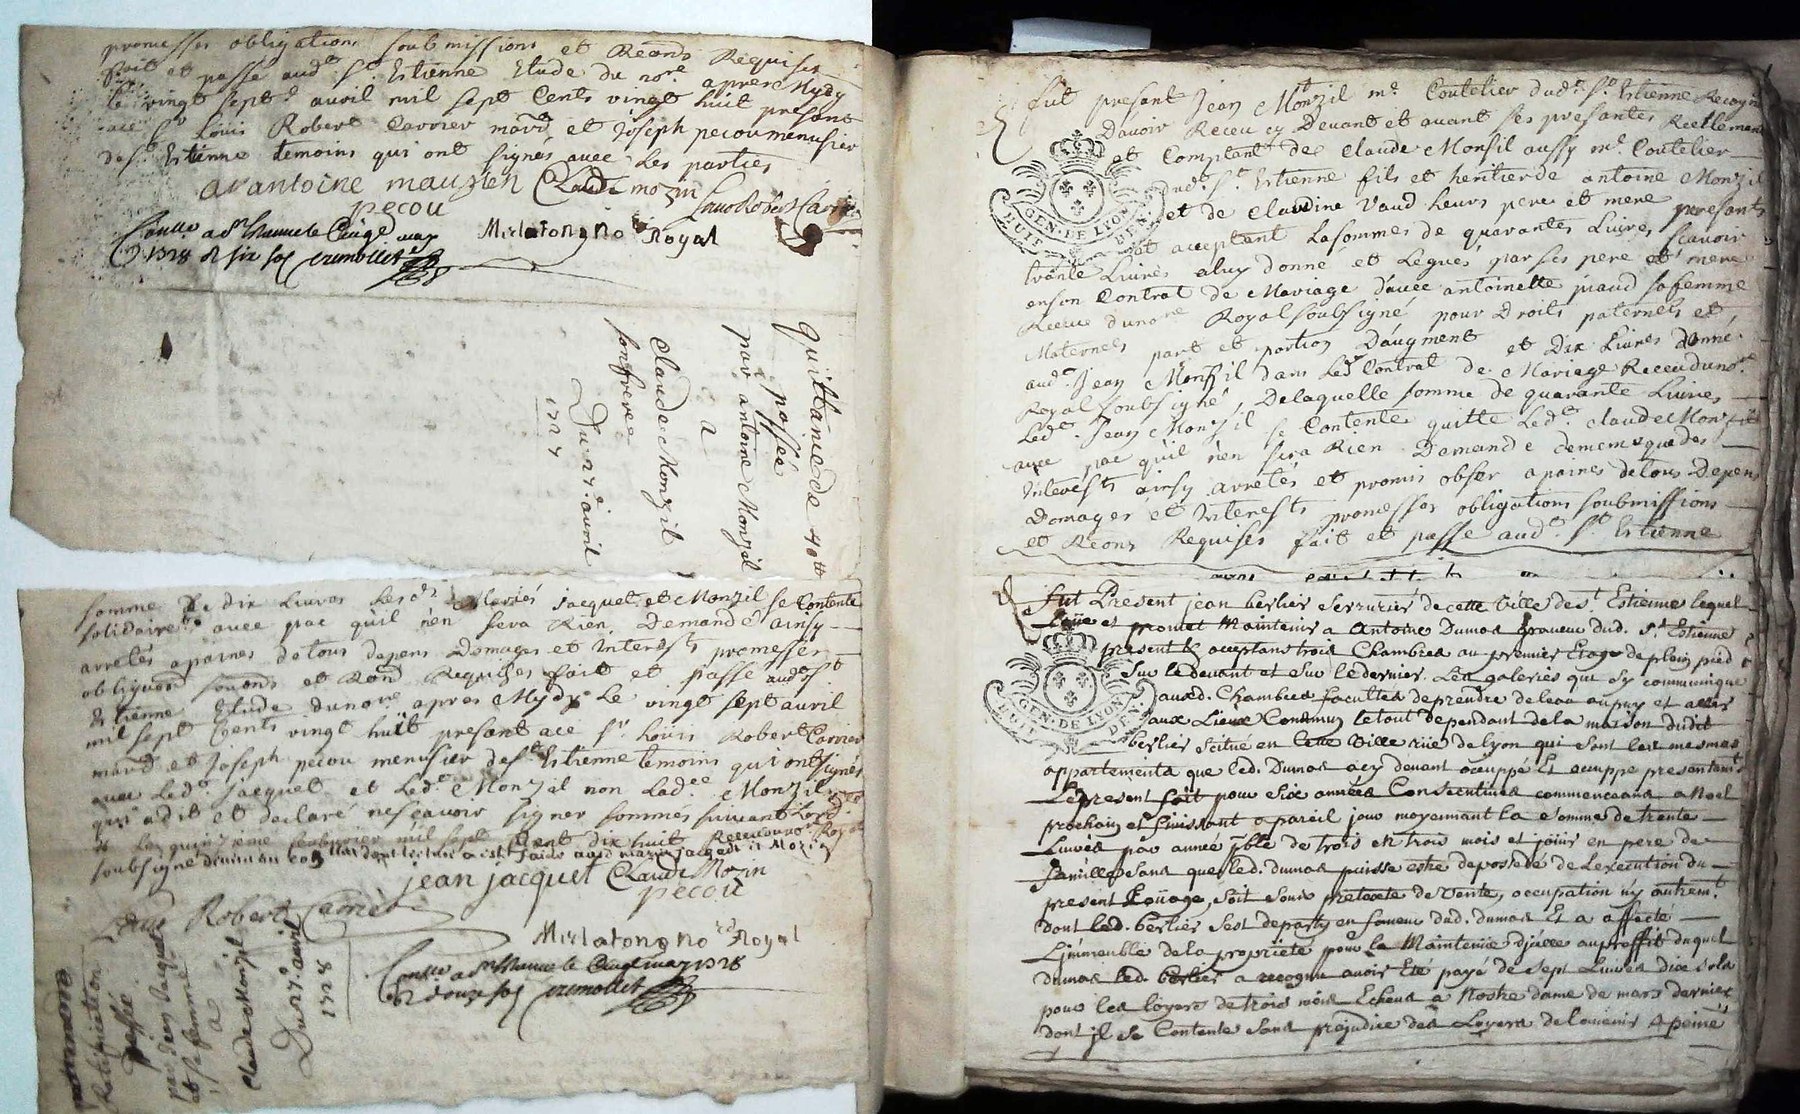 promesses obligations soubmissions et Réons Requises
fait et passé aud.t S.t Estienne Etude du no.re apres Mydy
le vingt sept.e avril mil sept Cents vingt huit presant
ace S.r Louis Robert Carrier mar.d et Joseph pecou menusier
de S.t Estienne temoins qui ont signés avec Les parties
antoine mauzieh Claude mozin
pecou
Mirlatong no.re Royal
Quittance de 40 tt
passée
par antoine Monzil
a
Claude Monzil
son frere
Du 27.e avril
1727
somme de dix Livres Lesd.ts Mariés Jacquet et Monzil se Contente
solidaire.t avec pac quil nen sera Rien Demandé ainsy
arretés aparnes de tous depens Domages et Interests promesses
Requises fait et passé aud S.t
Estienne Etude du no.re apres Mydy Le vingt sept avril
mil sept Cents vingt huit presant ace S.r Louis Robert Carrier
mar.d et Joseph pecou menusier de S.t Estienne temoins qui ont signés
avec Led.t Jacquet et Led.t Monzil non Lad.ee Monzil
qui a dit et declaré ne scavoir signer sommés suivant Lord.ce
jean jacquet Claude Mozin
pecou
Louis Robert Carrier
Mirlatong no.re Royal
Ratification
passée
par Jean Jaquet
et sa femme
a
Claude Monzil
Du 27.e avril
1728
fut presant Jean Monzil m.e Coutelier dud.t S.t Estienne Recognu
Davoir Receu cy Devant et avant ses presantes Reellement
et Comptant de Claude Monsil aussy m.e Coutelier
dud.t S.t Estienne fils et heritier de antoine Monzil
et de Claudine Vaud Leurs pere et mere presants
et acceptant La somme de quarante Livres scavoir
trante Livres aluy donné et Legués par ses pere et mere
en son Contrat de Mariage d'avec antoinette jiaud sa femme
Receu du no.re Royal soubsigné pour Droits paternels et
Maternels part et portion D'augment et Dix Livres donné
aud.t Jean Monzil dans Led.t Contrat de Mariage Receu du no.re
Royal soubsigné, De laquelle somme de quarante Livres
Led.t Jean Monzil se Contente quitte Led.t Claude Monzil
avec pac qu'il nen sera Rien Demandé
Interests ainsy arretés et promis obser aparnes de tous Depens
Domages et Interests promesses obligations soubmissions
et Réons Requises fait et passé aud.t S.t Estienne
GEN. DE LYON
HUIT DEN.
fut Present jean berlier serrurier de cette Ville de S.t Estienne lequel
Loüe et promet Maintenir a Antoine Dumas Graveur dud. S.t Estienne
present & aceptant trois Chambres au premier Etage de plein pied
Sur le devant et Sur le dernier. Les galeries qui sy communique
auxd. Chambres facultés de prendre de leau au puy et aller
aux Lieux Commun le tout dependant de la maison dudit
berlier scitué en Cette Ville rüe de lyon qui sont les mesmes
appartements que led. Dumas a cy devant occuppé Et occuppe presentant
Le present fait pour six années Consecutives commenceans a Noel
prochain et finissant a pareil jour moyennant la somme de trente
Livres par année p.ble de trois en trois mois et joüir en pere de
famille Sans que led. dumas puisse estre depossedé de Lexecution du
present Loüage, soit sous pretexte de Vente, occupation ny autrem.t
dont led. berlier sest departy en faveur dud. dumas Et a affecté
Limmeuble de la proprieté pour la Maintenüe dicelle au proffit duquel
dumas led. berlier a recognu avoir Eté payé de sept Livres dix sols
pour les loyers de trois mois Echeus a Nostre dame de mars dernier
dont il se Contente sans prejudice des Loyers de lavenir A peine
GEN. DE LYON
HUIT DEN.